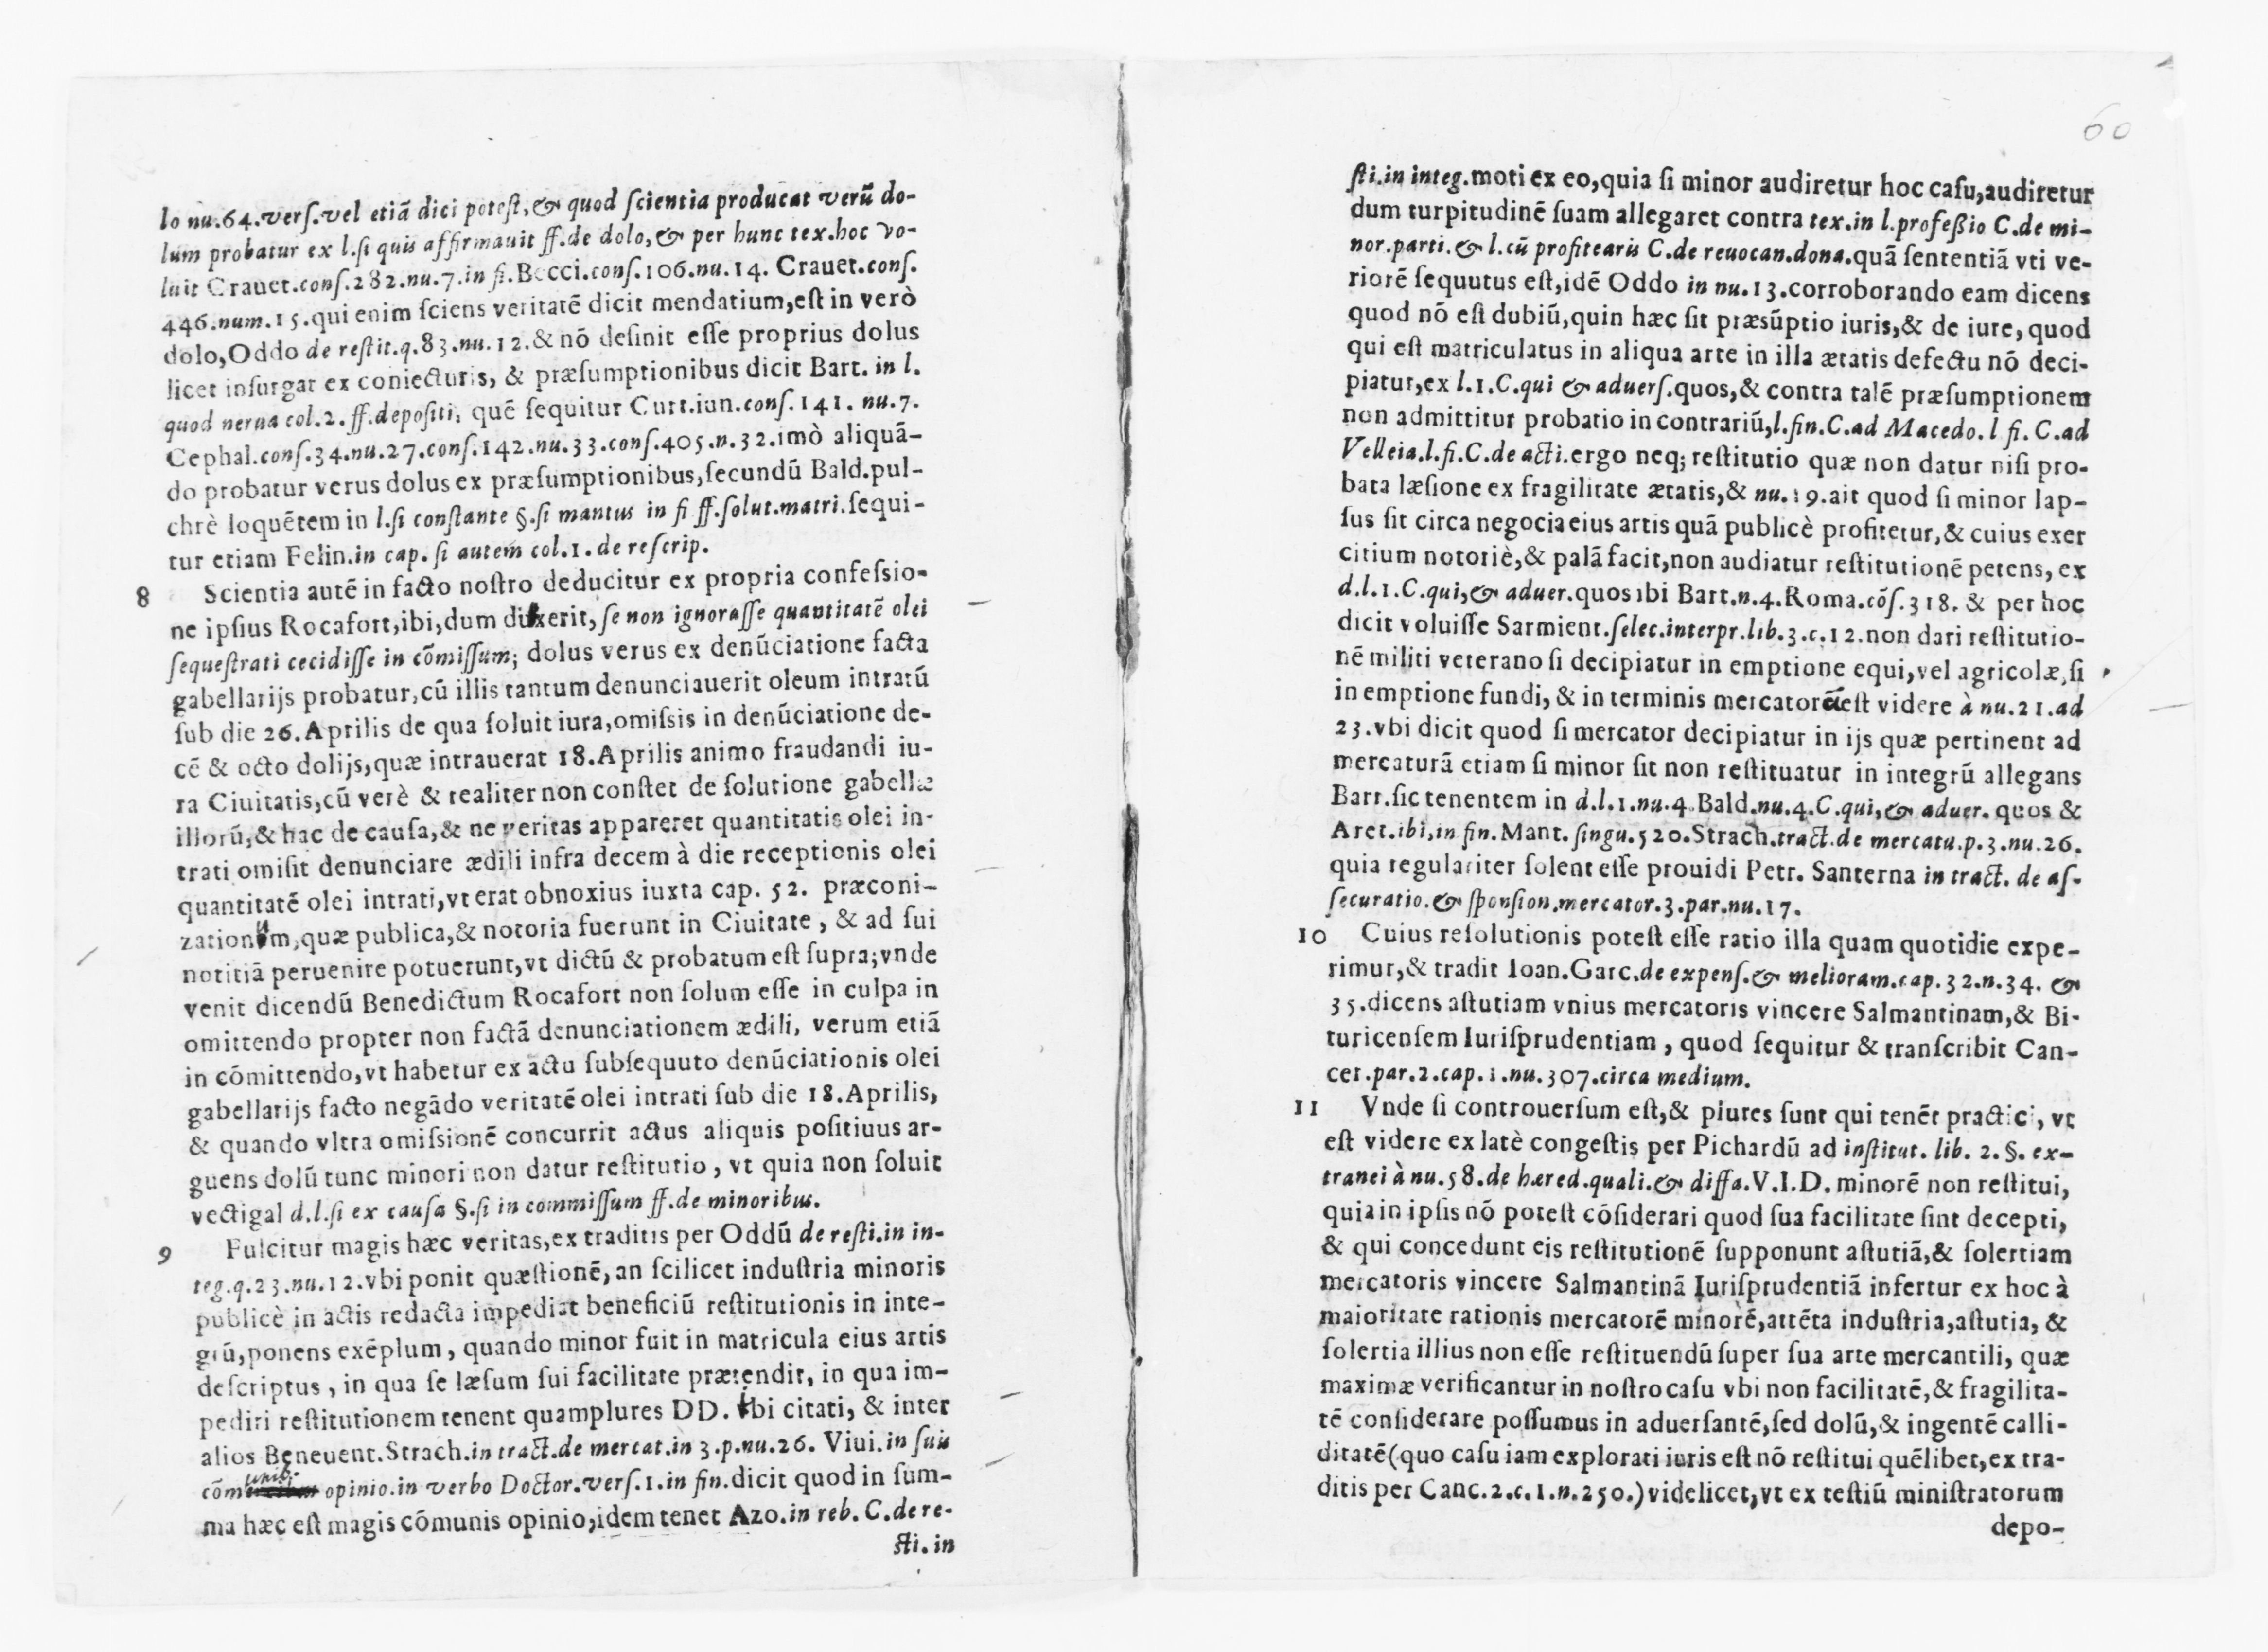 lo nu.64.verſ.vel etiã dici poteſt, & quod ſcientia producat verũ do-
lum probatur ex l.ſi quis affirmauit ff.de dolo, & per hunc tex.hoc vo-
luit Crauet.conſ.282.nu.7.in fi.Becci.conſ.106.nu.14. Crauet.conſ.
446.num.15.qui enim ſciens veritatẽ dicit mendatium,eſt in verò
dolo,Oddo de reſtit.q.83.nu.12.& nõ deſinit eſſe proprius dolus
licet inſurgat ex coniecturis, & præſumptionibus dicit Bart. in l.
quod nerua col.2.ff.depoſiti, quẽ ſequitur Curt.iun.conſ.141. nu.7.
Cephal.conſ.34.nu.27.conſ.142.nu.33.conſ.405.n.32.imò aliquã-
do probatur verus dolus ex præſumptionibus,ſecundũ Bald.pul-
chrè loquẽtem in l.ſi conſtante §.ſi mantus in fi ff.ſolut.matri.ſequi-
tur etiam Felin.in cap. ſi autem col.1. de reſcrip.
8 Scientia autẽ in facto noſtro deducitur ex propria confeſsio-
ne ipſius Rocafort,ibi,dum dixerit, ſe non ignoraſſe quantitatẽ olei
ſequeſtrati cecidiſſe in cõmiſſum; dolus verus ex denũciatione facta
gabellarijs probatur,cũ illis tantum denunciauerit oleum intratũ
ſub die 26.Aprilis de qua ſoluit iura,omiſsis in denũciatione de-
cẽ & octo dolijs,quæ intrauerat 18.Aprilis animo fraudandi iu-
ra Ciuitatis,cũ verè & realiter non conſtet de ſolutione gabellæ
illorũ,& hac de cauſa,& ne veritas appareret quantitatis olei in-
trati omiſit denunciare ædili infra decem à die receptionis olei
quantitatẽ olei intrati,vt erat obnoxius iuxta cap. 52. præconi-
zationum,quæ publica,& notoria fuerunt in Ciuitate, & ad ſui
notitiã peruenire potuerunt,vt dictũ & probatum eſt ſupra;vnde
venit dicendũ Benedictum Rocafort non ſolum eſſe in culpa in
omittendo propter non factã denunciationem ædili, verum etiã
in cõmittendo,vt habetur ex actu ſubſequuto denũciationis olei
gabellarijs facto negãdo veritatẽ olei intrati ſub die 18.Aprilis,
& quando vltra omiſsionẽ concurrit actus aliquis poſitiuus ar-
guens dolũ tunc minori non datur reſtitutio, vt quia non ſoluit
vectigal d.l.ſi ex cauſa §.ſi in commiſſum ff.de minoribus.
9 Fulcitur magis hæc veritas,ex traditis per Oddũ de reſti.in in-
teg.q.23.nu.12.vbi ponit quæſtionẽ, an ſcilicet induſtria minoris
publicè in actis redacta impediat beneficiũ reſtitutionis in inte-
grũ,ponens exẽplum, quando minor fuit in matricula eius artis
deſcriptus, in qua ſe læſum ſui facilitate prætendit, in qua im-
pediri reſtitutionem tenent quamplures DD. vbi citati, & inter
alios Beneuent.Strach.in tract.de mercat.in 3.p.nu.26. Viui.in ſuis
cõmunib. opinio.in verbo Doctor.verſ.1.in fin.dicit quod in ſum-
ma hæc eſt magis cõmunis opinio,idem tenet Azo.in reb. C.de re-
ſti.in
60
ſti.in integ.moti ex eo,quia ſi minor audiretur hoc caſu,audiretur
dum turpitudinẽ ſuam allegaret contra tex.in l.profeßio C.de mi-
nor.parti.& l.cũ profitearis C.de reuocan.dona.quã ſententiã vti ve-
riorẽ ſequutus eſt,idẽ Oddo in nu.13.corroborando eam dicens
quod nõ eſt dubiũ,quin hæc ſit præsũptio iuris,& de iure,quod
qui eſt matriculatus in aliqua arte in illa ætatis defectu nõ deci-
piatur,ex l.1.C.qui & aduerſ.quos,& contra talẽ præſumptionem
non admittitur probatio in contrariũ,l.fin.C.ad Macedo.l fi.C.ad
Velleia.l.fi.C.de acti.ergo neq; reſtitutio quæ non datur niſi pro-
bata læſione ex fragilitate ætatis,& nu.19.ait quod ſi minor lap-
ſus ſit circa negocia eius artis quã publicè profitetur,& cuius exer
citium notoriè,& palã facit,non audiatur reſtitutionẽ petens, ex
d.l.1.C.qui,& aduer.quos ibi Bart.n.4.Roma.cõſ.318. & per hoc
dicit voluiſſe Sarmient.ſelec.interpr.lib.3.c.12.non dari reſtitutio-
nẽ militi veterano ſi decipiatur in emptione equi,vel agricolæ,ſi
in emptione fundi, & in terminis mercatorẽ eſt videre à nu.21.ad
23.vbi dicit quod ſi mercator decipiatur in ijs quæ pertinent ad
mercaturã etiam ſi minor ſit non reſtituatur in integrũ allegans
Barr.ſic tenentem in d.l.1.nu.4.Bald.nu.4.C.qui,& aduer. quos &
Aret.ibi,in fin.Mant.ſingu.520.Strach.tract.de mercatu.p.3.nu.26.
quia regulariter ſolent eſſe prouidi Petr. Santerna in tract. de aſ-
ſecuratio.& ſponſion.mercator.3.par.nu.17.
10 Cuius reſolutionis poteſt eſſe ratio illa quam quotidie expe-
rimur,& tradit Ioan.Garc.de expenſ.& melioram.cap.32.n.34. &
35.dicens aſtutiam vnius mercatoris vincere Salmantinam,& Bi-
turicenſem Iuriſprudentiam, quod ſequitur & tranſcribit Can-
cer.par.2.cap.1.nu.307.circa medium.
11 Vnde ſi controuerſum eſt,& plures ſunt qui tenẽt practici, vt
eſt videre ex latè congeſtis per Pichardũ ad inſtitut. lib. 2. §. ex-
tranei à nu.58.de hæred.quali.& diffa.V.I.D. minorẽ non reſtitui,
quia in ipſis nõ poteſt cõſiderari quod ſua facilitate ſint decepti,
& qui concedunt eis reſtitutionẽ ſupponunt aſtutiã,& ſolertiam
mercatoris vincere Salmantinã Iuriſprudentiã infertur ex hoc à
maioritate rationis mercatorẽ minorẽ,attẽta induſtria,aſtutia, &
ſolertia illius non eſſe reſtituendũ ſuper ſua arte mercantili, quæ
maximæ verificantur in noſtro caſu vbi non facilitatẽ,& fragilita-
tẽ conſiderare poſſumus in aduerſantẽ,ſed dolũ,& ingentẽ calli-
ditatẽ(quo caſu iam explorati iuris eſt nõ reſtitui quẽlibet,ex tra-
ditis per Canc.2.c.1.n.250.)videlicet,vt ex teſtiũ miniſtratorum
depo-